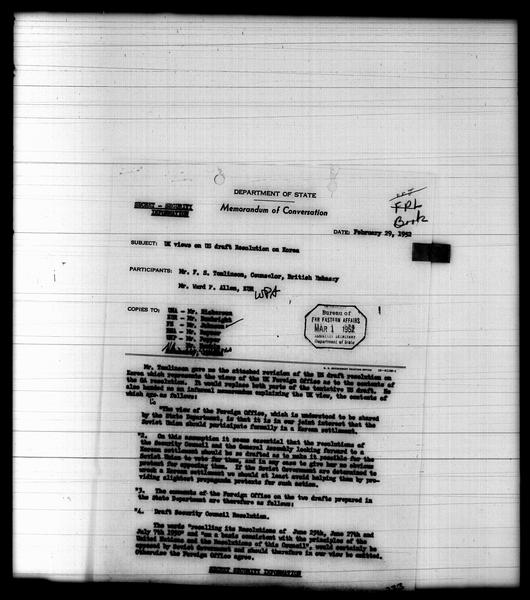 DEPARTMENT OF STATE
Memorandum of Conversation
SECRET - SECURITY
INFORMATION
FRL
Book
DATE: February 29, 1952
SUBJECT: UK views on US draft Resolution on Korea
PARTICIPANTS: Mr. F. S. Tomlinson, Counselor, British Embassy
Mr. Ward P. Allen, EUR
WPA
COPIES TO: UNA - Mr. Hickerson
Bureau of
FAR EASTERN AFFAIRS
MAR 1 1952
Department of State
Mr. Tomlinson gave me the attached revision of the US draft resolution on
Korea which represents the views of the UK Foreign Office as to the contents of
the GA resolution. It would replace both parts of the tentative US draft. He
also handed me an informal memorandum explaining the UK view, the contents of
which are as follows:
"The view of the Foreign Office, which is understood to be shared
by the State Department, is that it is in our joint interest that the
Soviet Union should participate formally in a Korean settlement.
"2. On this assumption it seems essential that the resolutions of
the Security Council and the General Assembly looking forward to a
Korean settlement should be so drafted as to make it possible for the
Soviet Union to vote for them, and in any case to give her no obvious
pretext for opposing them. If the Soviet Government are determined to
wreck a Korean settlement we should at least avoid helping them by pro-
viding slightest propaganda pretexts for such action.
"3. The comments of the Foreign Office on the two drafts prepared in
the State Department are therefore as follows:
"4. Draft Security Council Resolution.
The words "recalling its Resolutions of June 25th, June 27th and
July 7th 1950" and "on a basis consistent with the principles of the
United Nations and the Resolutions of this Council", would certainly be
opposed by Soviet Government and should therefore in our view be omitted.
Otherwise the Foreign Office agree.
SECRET SECURITY INFORMATION